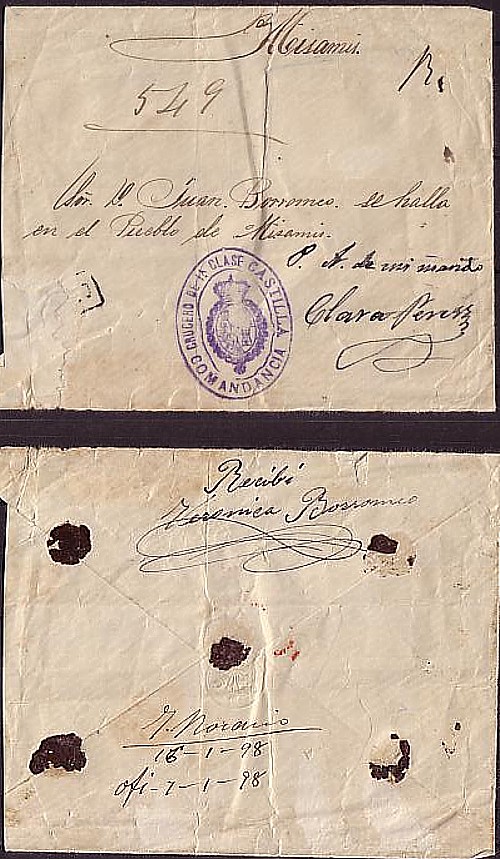 Misamis.
R.
549
Sor. D. Juan Borromeo se halla
en el Pueblo de Misamis.
P. A. de mi marido
Clara Perez
CRUCERO DE 1ª CLASE CASTILLA
COMANDANCIA
Recibi
Veronica Borromeo
16-1-98
ofi-7-1-98